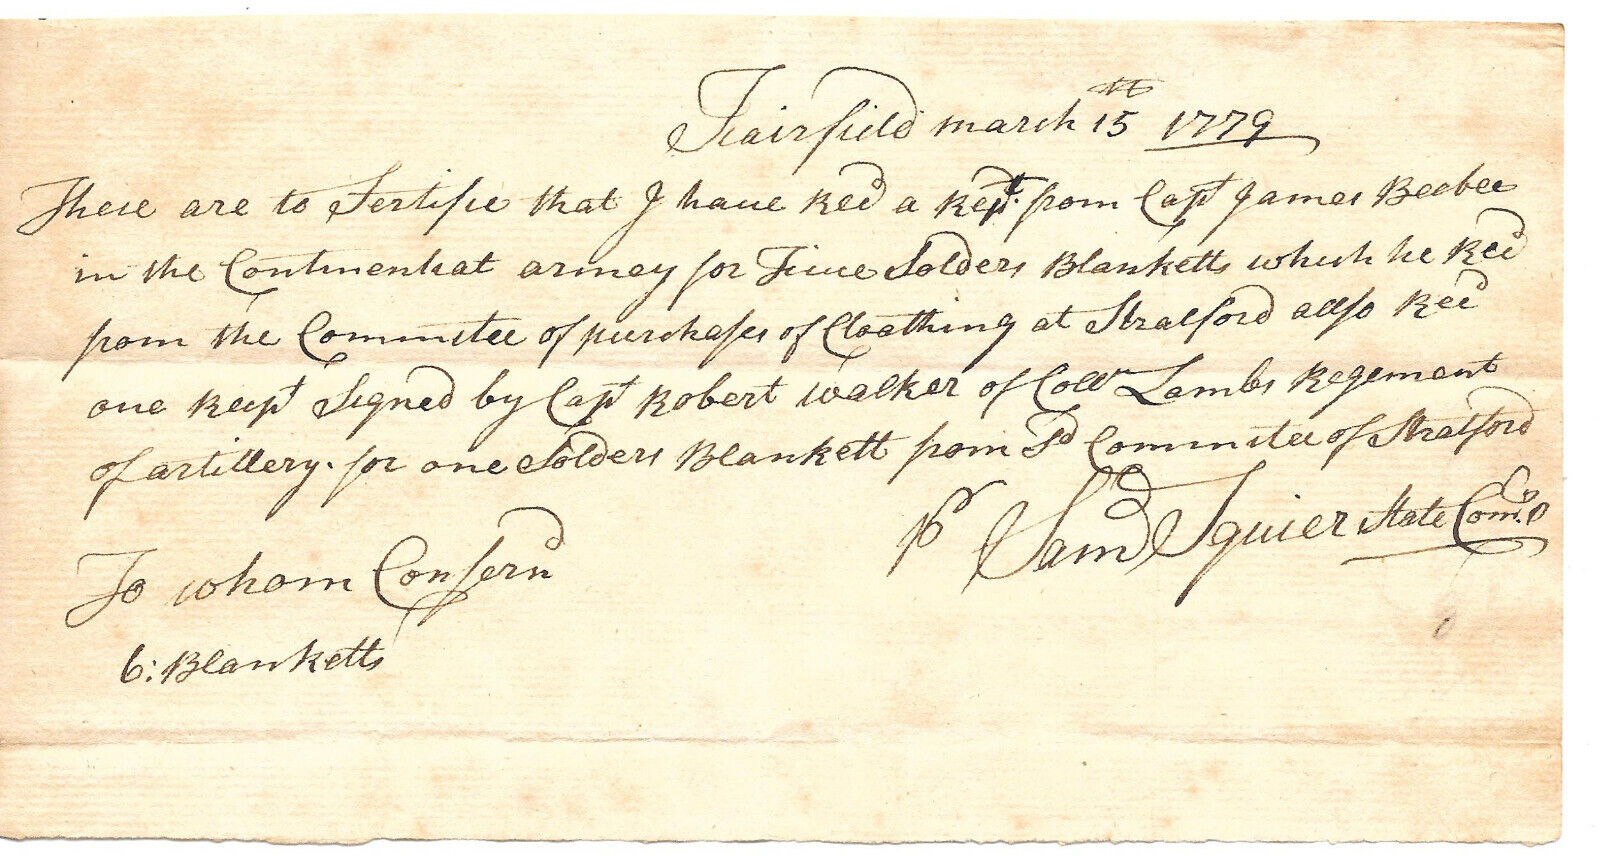 Fairfield march 15th 1779
These are to Sertifie that I have Recd a Rept. from Capt James Beebee
in the Continentiat armey for five Solders Blanketts which he Recd
from the Commitee of purchases of Cloathing at Stratford allso Recd
one Recipt Signed by Capt Robert Walker of Colln Lambs Regement
of artillery. for one Solders Blankett from Sd Commitee of Stratford
pr Samd Squier State Com.
To whom Consernd
6: Blanketts